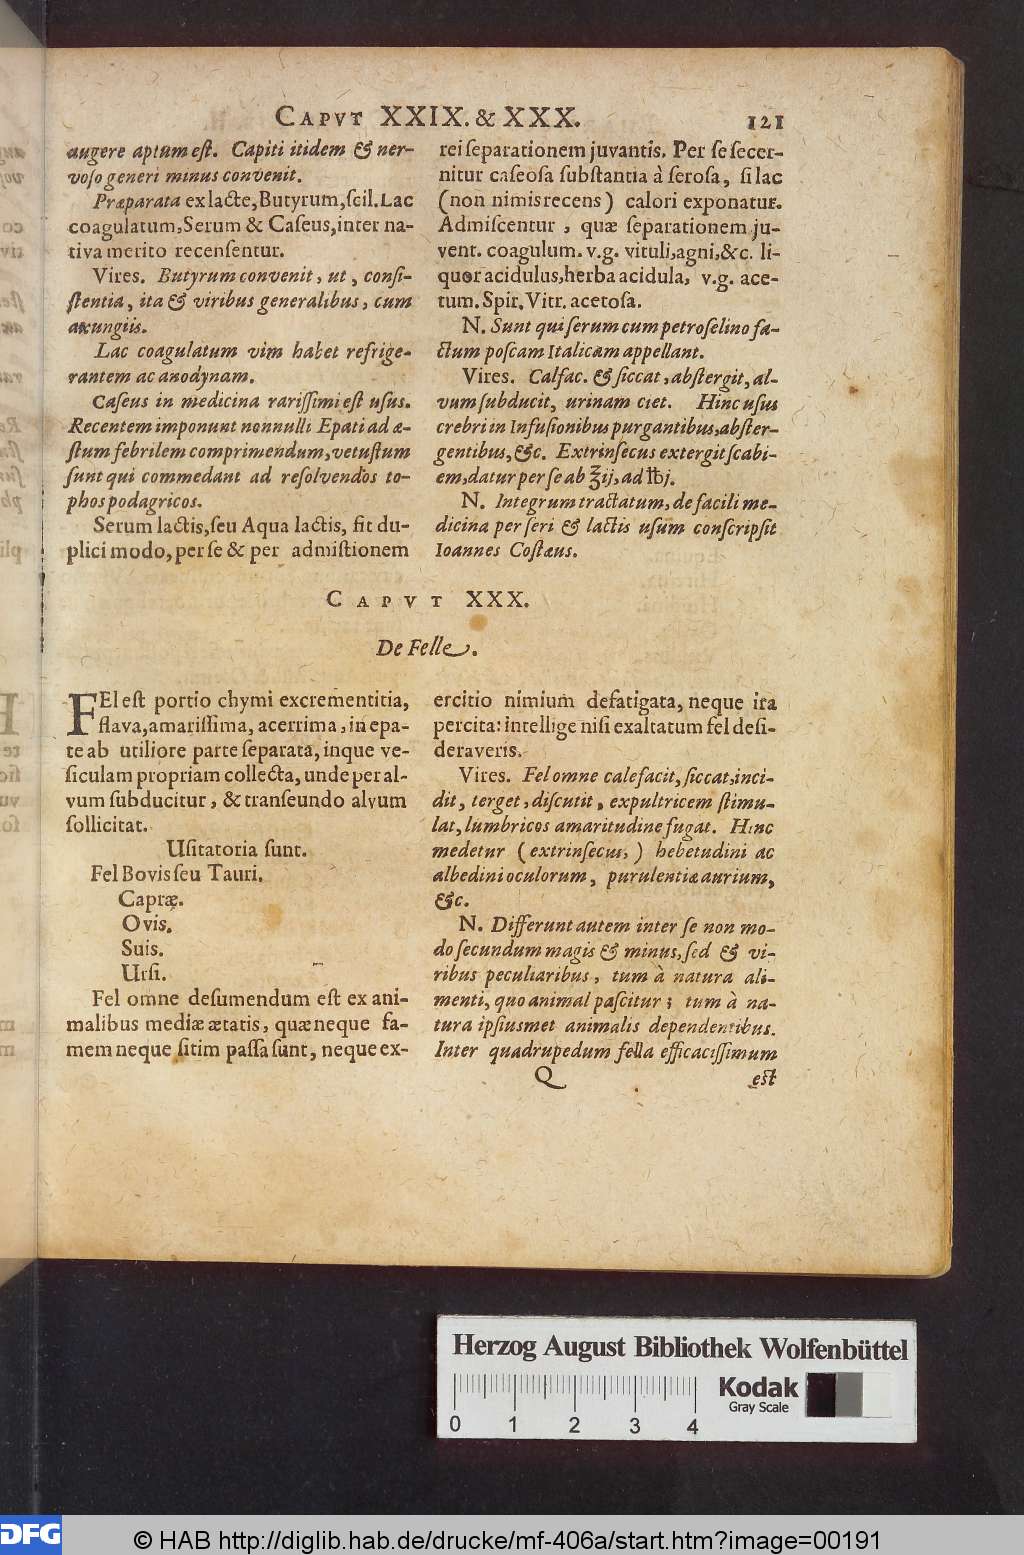 CAPVT XXIX. & XXX. 121
augere aptum est. Capiti itidem & ner-
voso generi minus convenit.
Præparata ex lacte, Butyrum, scil. Lac
coagulatum, Serum & Caseus, inter na-
tiva merito recensentur.
Vires. Butyrum convenit, ut, consi-
stentia, ita & viribus generalibus, cum
axungiis.
Lac coagulatum vim habet refrige-
rantem ac anodynam.
Caseus in medicina rarissimi est usus.
Recentem imponunt nonnulli Epati ad æ-
stum febrilem comprimendum, vetustum
sunt qui commedant ad resolvendos to-
phos podagricos.
Serum lactis, seu Aqua lactis, fit du-
plici modo, per se & per admistionem
rei separationem juvantis. Per se secer-
nitur caseosa substantia à serosa, si lac
(non nimis recens) calori exponatur.
Admiscentur, quæ separationem ju-
vent. coagulum. v.g. vituli, agni, &c. li-
quor acidulus, herba acidula, v.g. ace-
tum. Spir. Vitr. acetosa.
N. Sunt qui serum cum petroselino fa-
ctum poscam Italicam appellant.
Vires. Calfac. & siccat, abstergit, al-
vum subducit, urinam ciet. Hinc usus
crebri in Infusionibus purgantibus, abster-
gentibus, &c. Extrinsecus extergit scabi-
em, datur per se ab ʒij, ad ℔j.
N. Integrum tractatum, de facili me-
dicina per seri & lactis usum conscripsit
Ioannes Costæus.
CAPVT XXX.
De Felle.
FEl est portio chymi excrementitia,
flava, amarissima, acerrima, in epa-
te ab utiliore parte separata, inque ve-
siculam propriam collecta, unde per al-
vum subducitur, & transeundo alvum
sollicitat.
Usitatoria sunt.
Fel Bovis seu Tauri.
Capræ.
Ovis.
Suis.
Ursi.
Fel omne desumendum est ex ani-
malibus mediæ ætatis, quæ neque fa-
mem neque sitim passa sunt, neque ex-
ercitio nimium defatigata, neque ira
percita: intellige nisi exaltatum fel desi-
deraveris.
Vires. Fel omne calefacit, siccat, inci-
dit, terget, discutit, expultricem stimu-
lat, lumbricos amaritudine fugat. Hinc
medetur (extrinsecus,) hebetudini ac
albedini oculorum, purulentiæ aurium,
&c.
N. Differunt autem inter se non mo-
do secundum magis & minus, sed & vi-
ribus peculiaribus, tum à natura ali-
menti, quo animal pascitur; tum à na-
tura ipsiusmet animalis dependentibus.
Inter quadrupedum fella efficacissimum
Q est
Herzog August Bibliothek Wolfenbüttel
0 1 2 3 4
Kodak
Gray Scale
DFG
© HAB http://diglib.hab.de/drucke/mf-406a/start.htm?image=00191